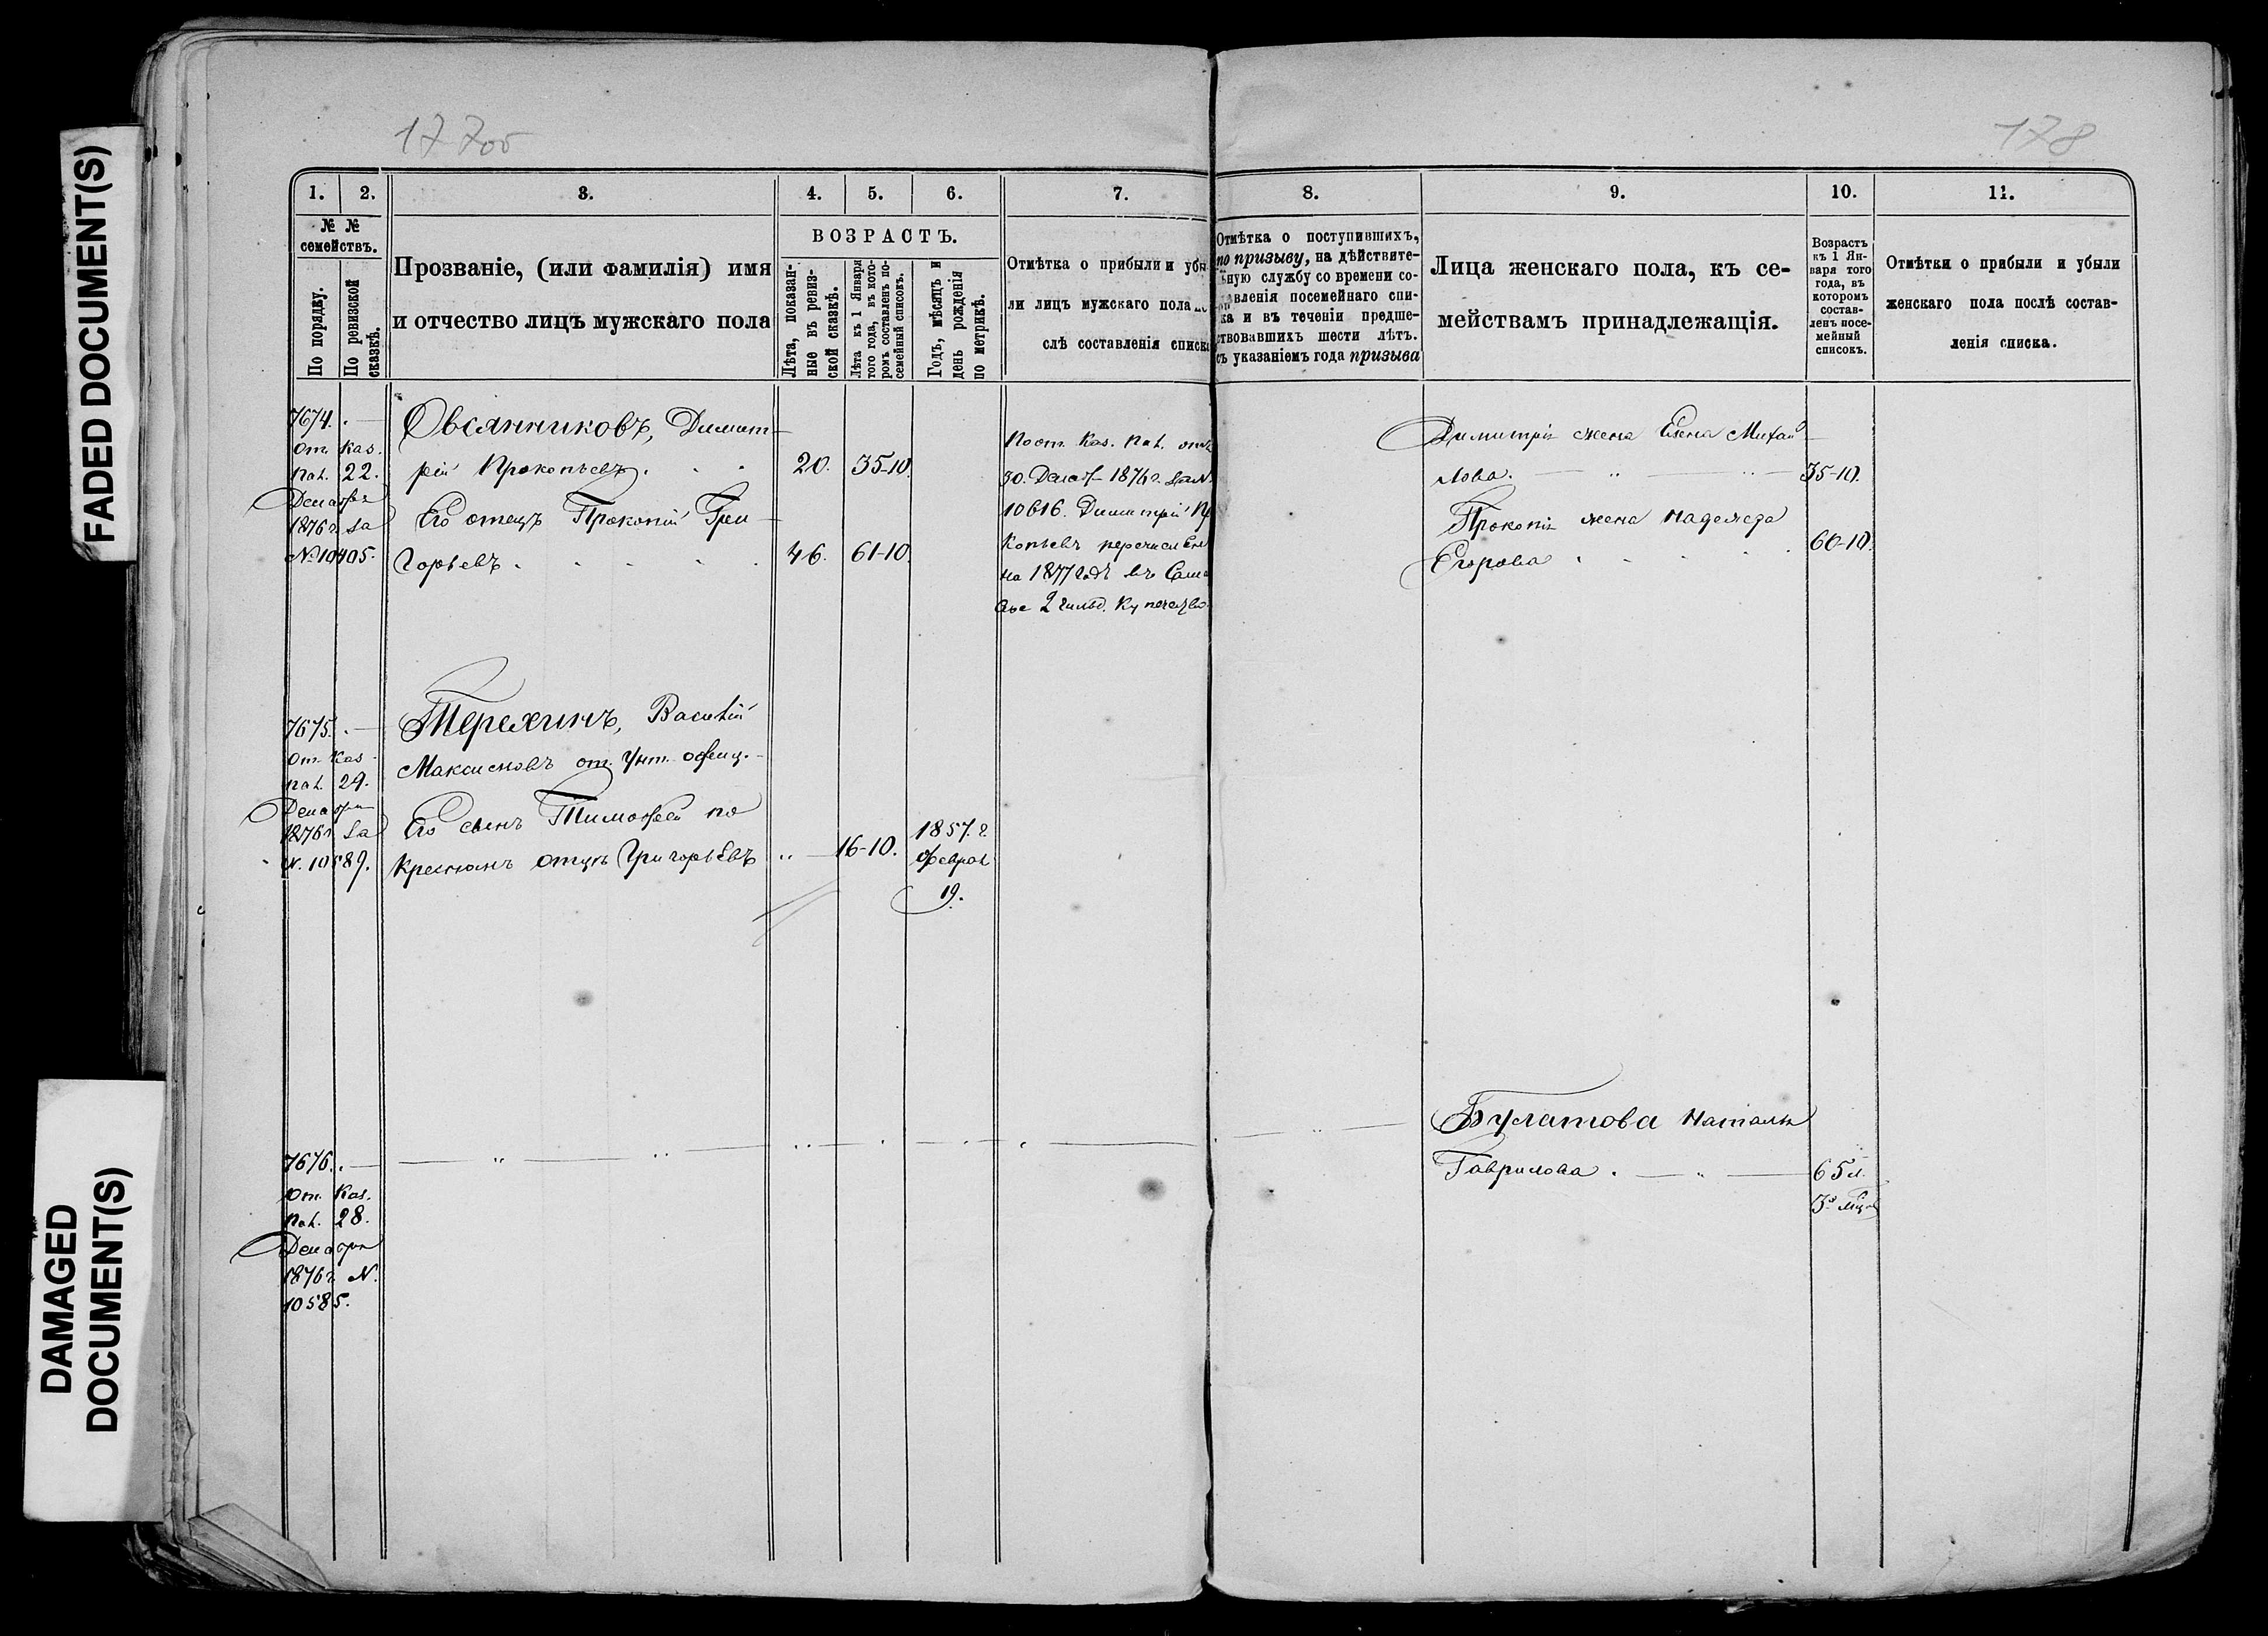 FADED DOCUMENT(S)
DAMAGED
DOCUMENT(S)
177об
178
1.
2.
3.
4.
5.
6.
7.
8.
9.
10.
11.
№ №
семействъ.
По порядку.
По ревизской
сказкѣ.
Прозваніе, (или фамилія) имя
и отчество лицъ мужскаго пола
ВОЗРАСТЪ.
Лѣта, показан-
ные въ ревиз-
ской сказкѣ.
Лѣта къ 1 Января
того года, въ кото-
ромъ составленъ по-
семейный списокъ.
Годъ, мѣсяцъ и
день рожденія
по метрикѣ.
Отмѣтка о прибыли и убы
ли лицъ мужскаго пола по
слѣ составленія списка
Отмѣтка о поступившихъ,
по призыву, на дѣйствите-
льную службу со времени со-
ставленія посемейнаго спи-
ска и въ теченіи предше-
ствовавшихъ шести лѣтъ.
съ указаніемъ года призыва
Лица женскаго пола, къ се-
мействамъ принадлежащія.
Возрастъ
къ 1 Ян-
варя того
года, въ
которомъ
состав-
ленъ посе-
мейный
списокъ.
Отмѣтки о прибыли и убыли
женскаго пола послѣ состав-
ленія списка.
7674.
от. Каз.
пал. 22.
Декабря
1876 г. за
№ 10405.
Овсянниковъ, Димит-
рій Прокопьевъ.
20.
35-10.
Его отецъ Прокопій Гри-
горьевъ
46.
61-10.
По от. Каз. пал. отъ
30. Декаб. 1876 г. за №
10616. Димитрій Пр
копьевъ перечислен
на 1877 годъ въ Сама
2 гильд. купечество.
Димитрія жена Елена Михай-
лова.
35-10.
Прокопія жена Надежда
Егорова
60-10.
7675.
от. Каз.
пал. 29.
Декабря
1876 г. за
№. 10589.
Терехинъ, Василій
Максимовъ от. Унт. офиц.
Его сынъ Тимофей по
крестномъ отцѣ Григорьевъ
16-10.
1857. г.
Феврал
19.
7676.
От. Каз.
пал. 28.
Декабря
1876 г. №.
10585.
Булатова Наталья
Гаврилова.
65 л.
3 мѣс.